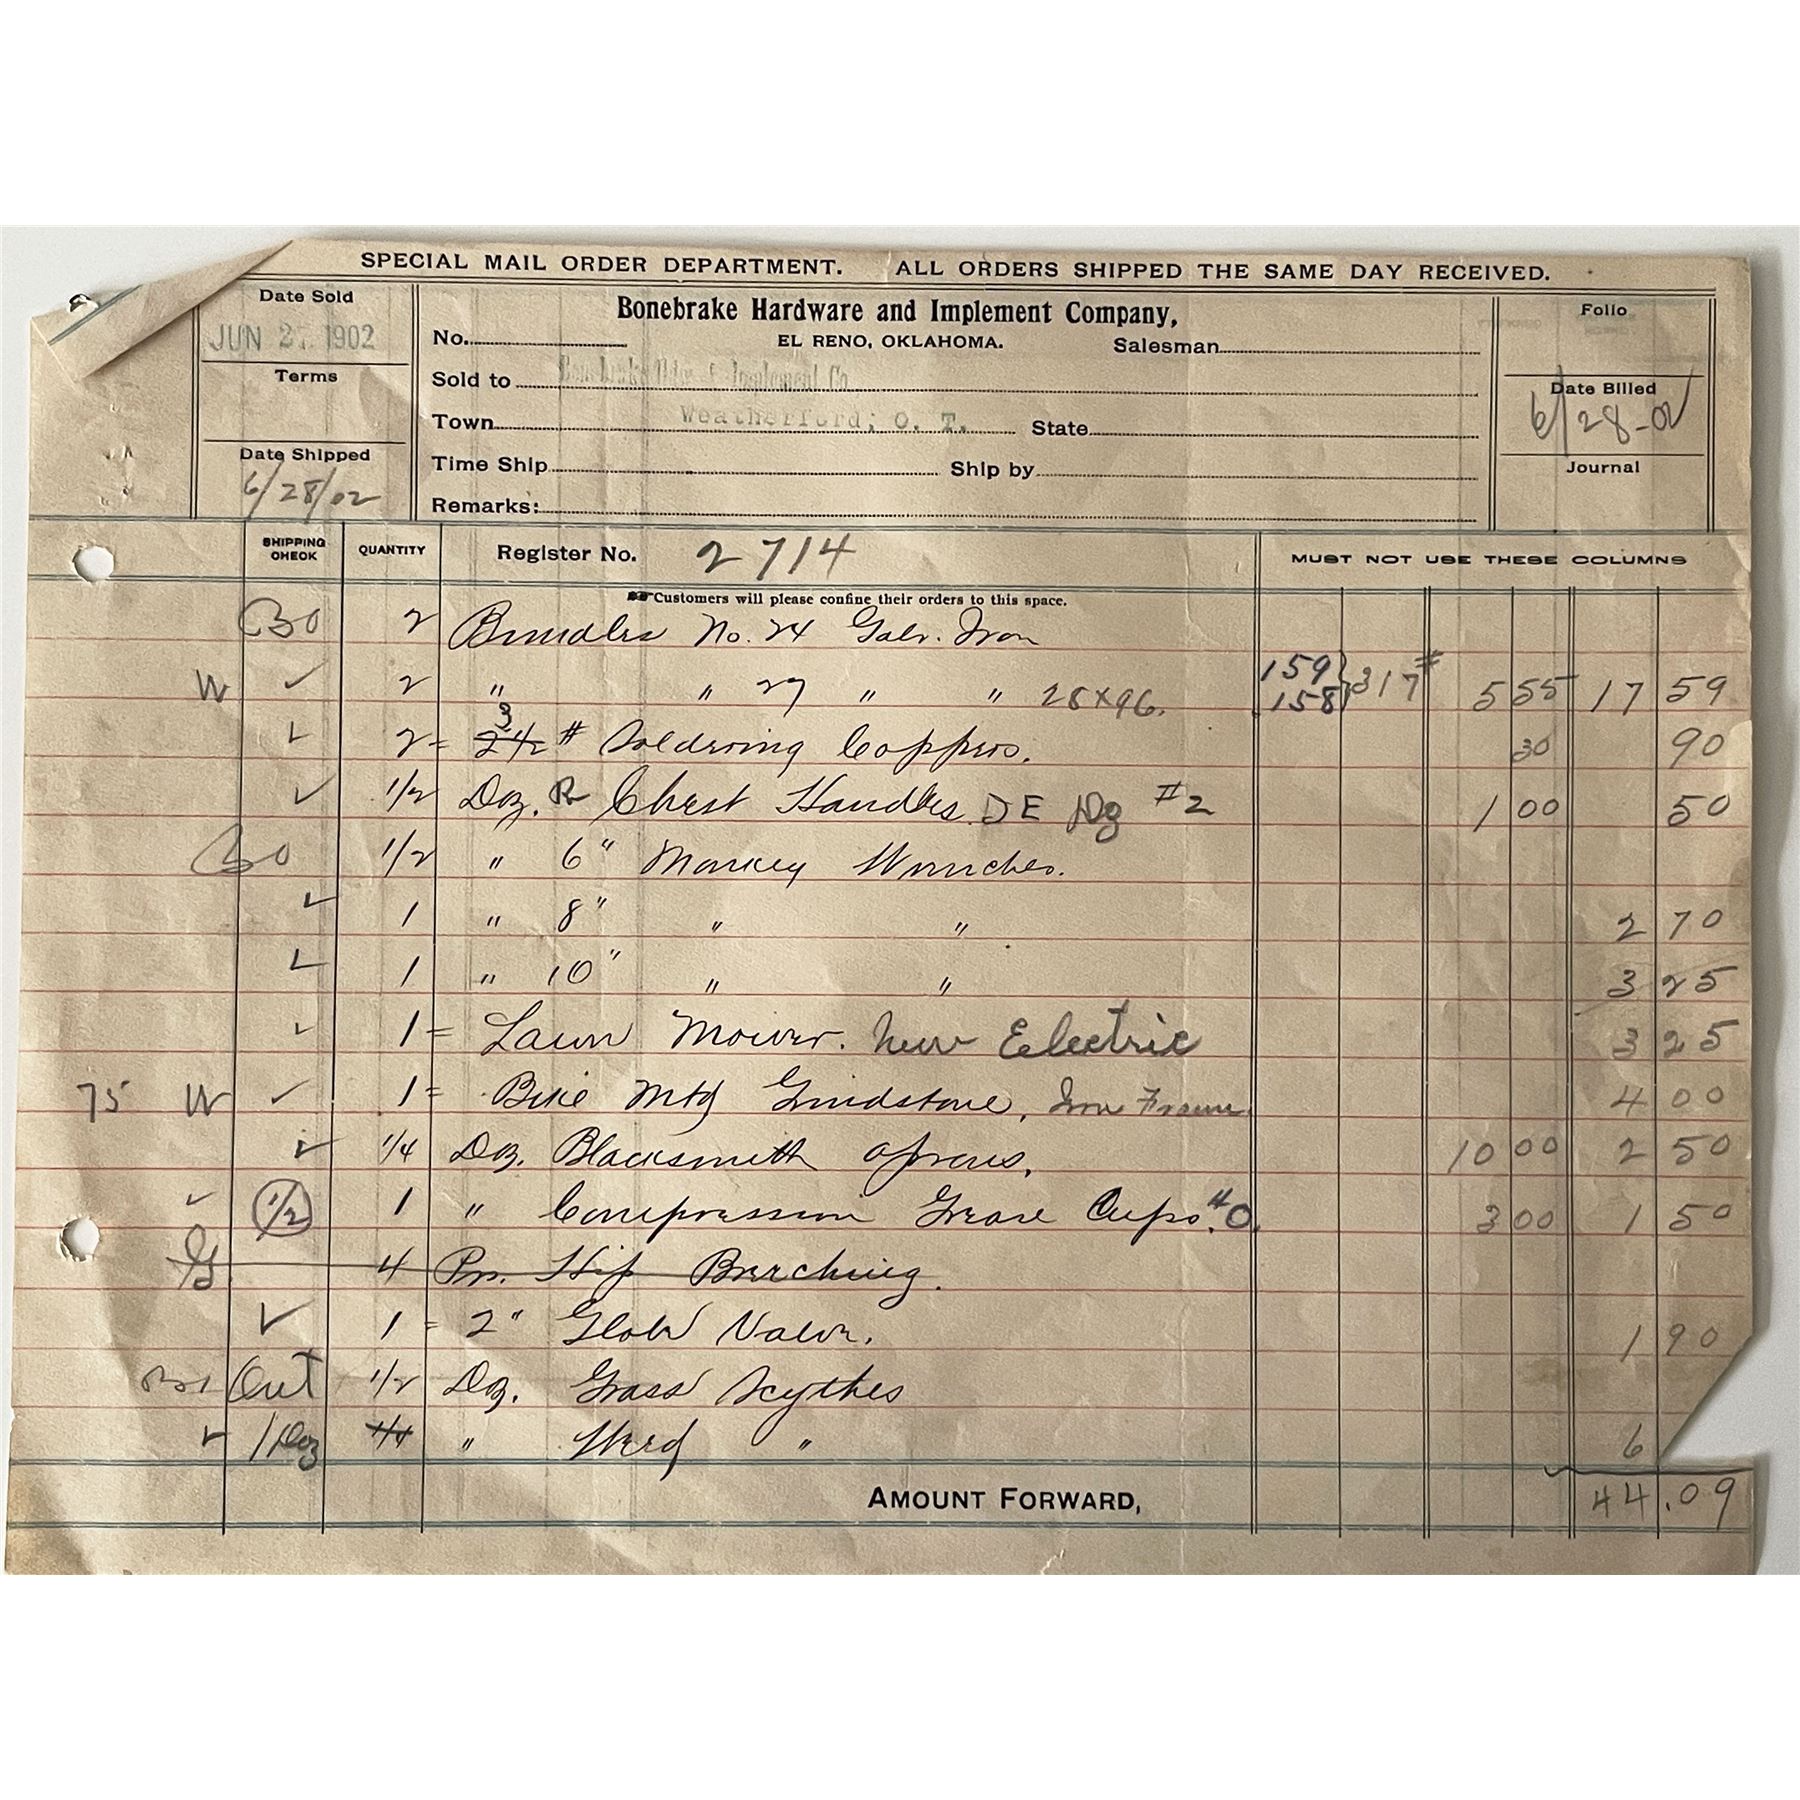 SPECIAL MAIL ORDER DEPARTMENT. ALL ORDERS SHIPPED THE SAME DAY RECEIVED.
Date Sold
JUN 27 1902
Terms
Date Shipped
6/28/02
Bonebrake Hardware and Implement Company,
No. EL RENO, OKLAHOMA. Salesman
Sold to Implement Co
Town Weatherford, O. T. State
Time Ship Ship by
Remarks:
Folio
Date Billed
6/28-02
Journal
SHIPPING CHECK QUANTITY Register No. 2714 MUST NOT USE THESE COLUMNS
Customers will please confine their orders to this space.
BO 2 Bundles No. 24 Galv. Iron
W ✓ 2 " " 27 " " 28x96. 159 158 } 317# 5 55 17 59
✓ 2 = 2 1/2 3 # Soldering Coppers. 30 90
✓ 1/2 Doz. Pr Chest Handles DE Dg #2 1 00 50
BO 1/2 " 6" Monkey Wrenches.
✓ 1 " 8" " " 2 70
✓ 1 " 10" " " 3 25
✓ 1 = Lawn Mower. New Electric 3 25
75 W ✓ 1 = Bike Mtd Grindstone, Iron Frame 4 00
✓ 1/4 Doz. Blacksmith aprons. 10 00 2 50
✓ 1/2 1 " Compression Grease Cups. #0. 3 00 1 50
4 Prs. Hip Breeching.
✓ 1 = 2" Globe Valve. 1 90
Out 1/2 Doz. Grass Scythes
✓ 1 Doz 1/4 " Weed " 6
AMOUNT FORWARD, 44.09